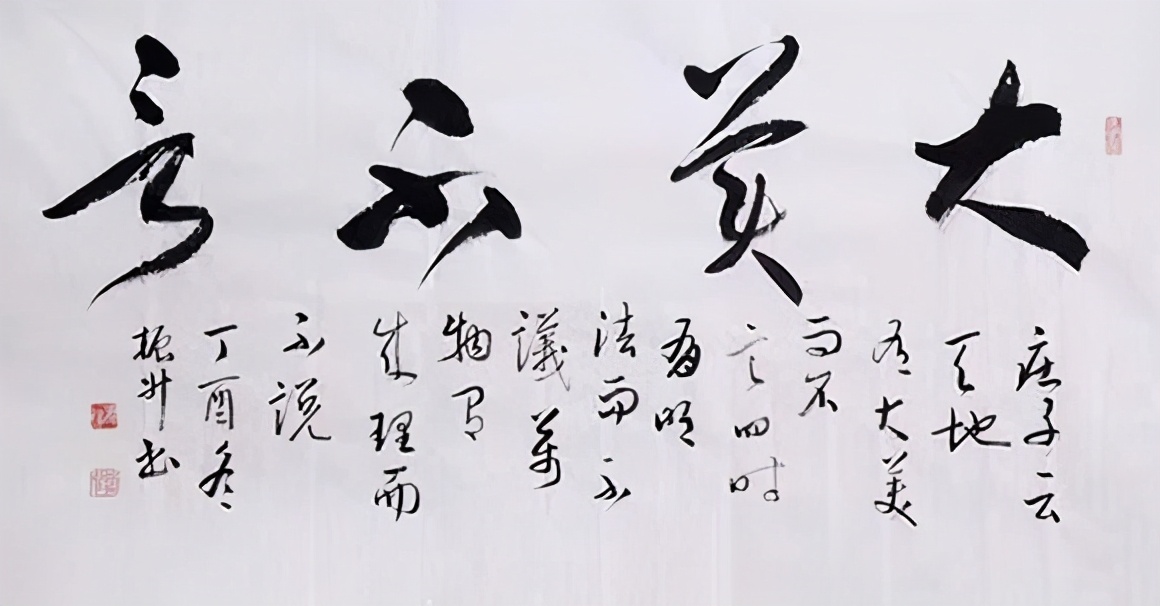 大美不言
庄子云
天地
有大美
而不
言四时
有明
法而不
議萬
物有
成理而
不説
丁酉冬
振升书